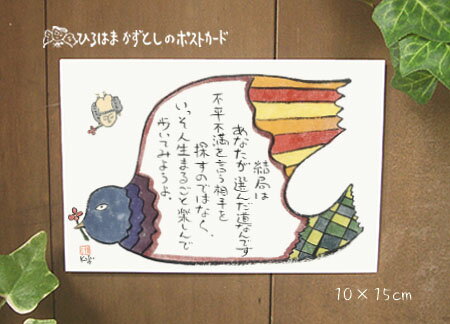 ひろはまかずとしのポストカード
結局は
あなたが選んだ道なんです
不平不満を言う相手を
探すのではなく、
いっそ人生まるごと楽しんで
歩いてみようよ。
10×15cm